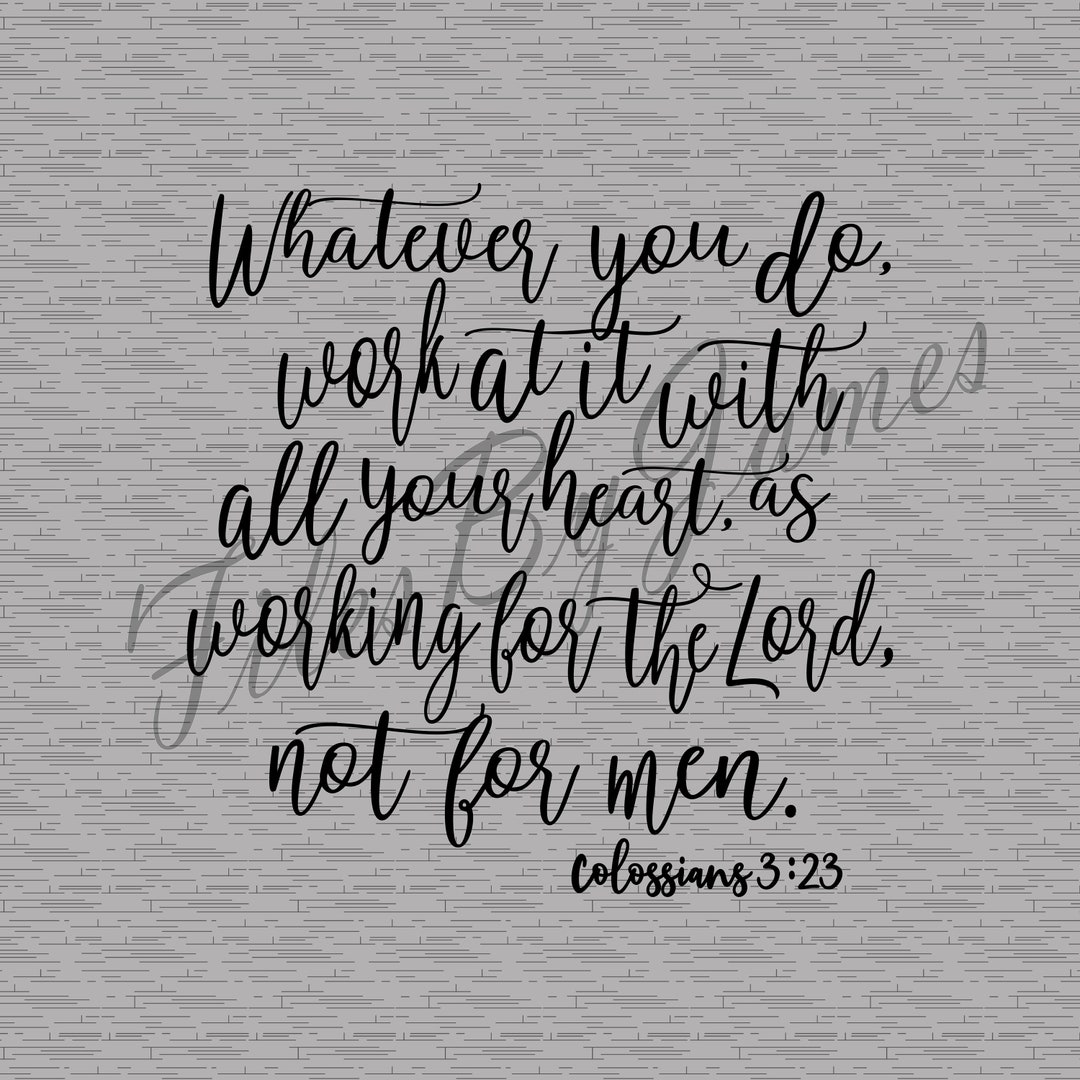 Whatever you do,
work at it with
all your heart, as
working for the Lord,
not for men.
Colossians 3:23
Files By James